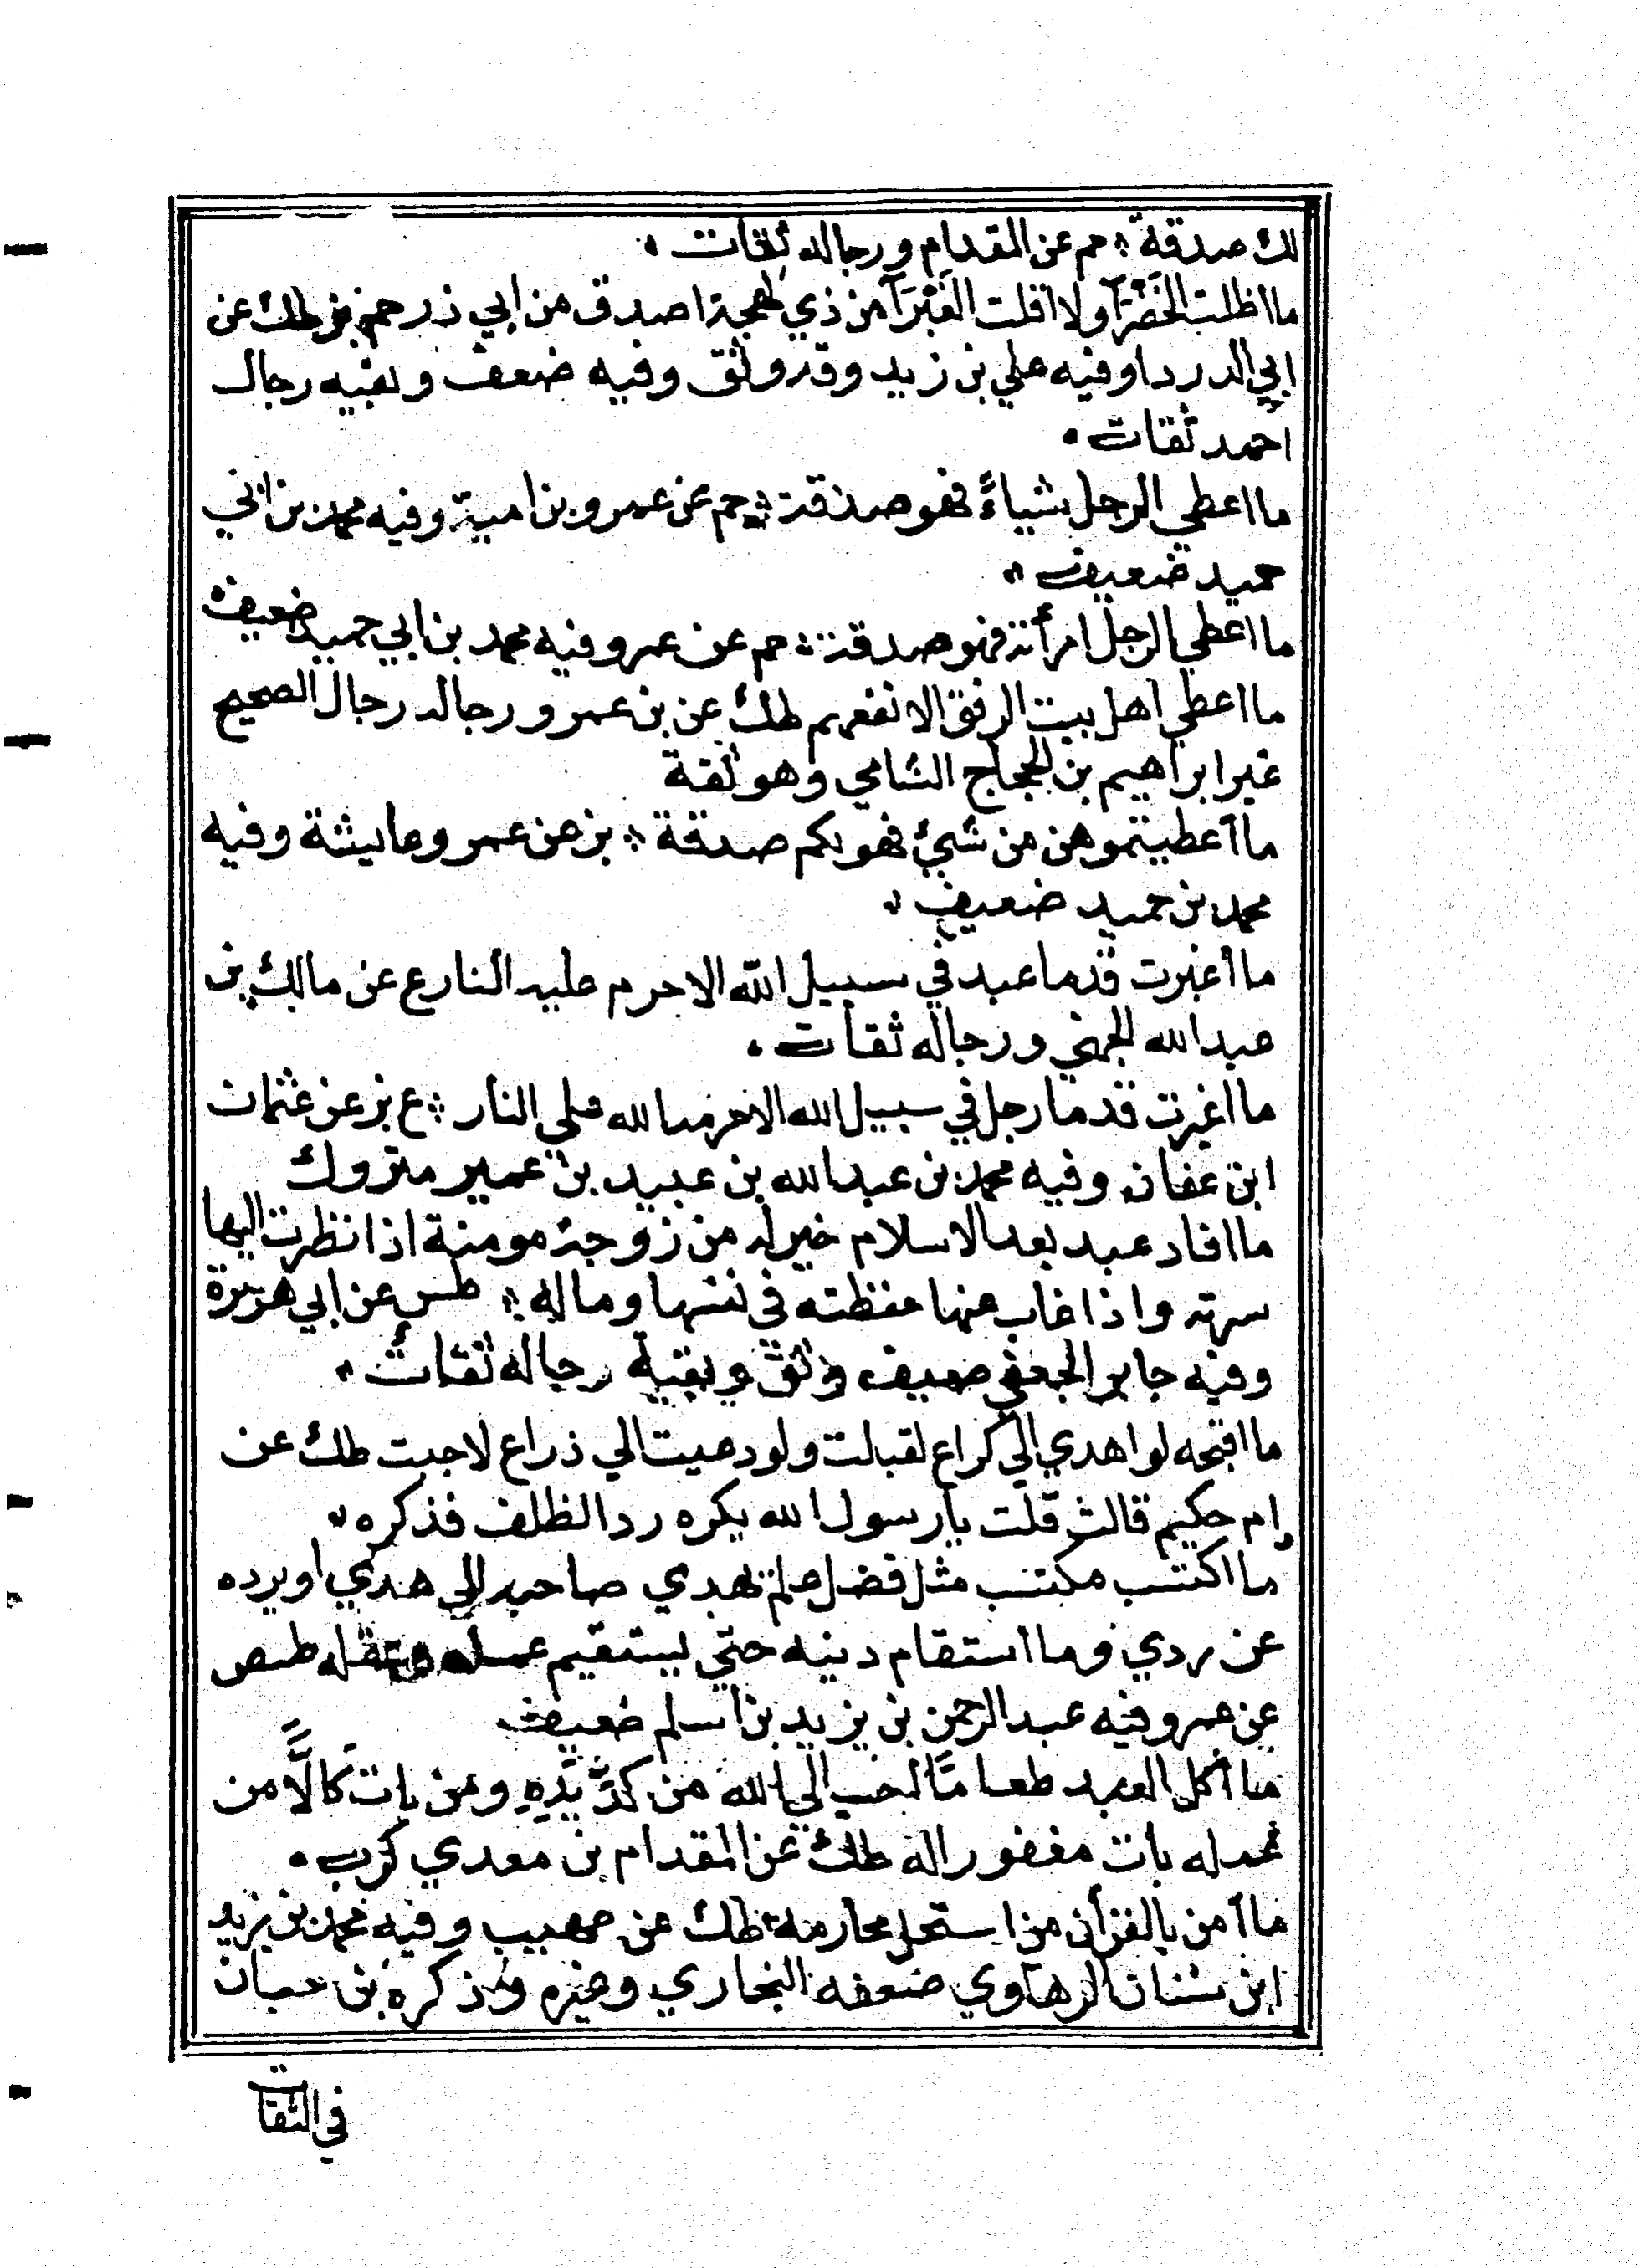 لك صدقة ؞ حم عن المقدام ورجاله ثقات ؞
ما اظلت الخَضْرَآ ولا اقلت الغَبْرَآ من ذي لهجة اصدق من ابي ذر حم بز طك عن
ابي الدردا وفيه علي بن زيد وقد وثق وفيه ضعف وبقيه رجال
احمد ثقات ؞
ما اعطي الرجل شياءً فهو صدقة ؞ حم عن عمرو بن امية وفيه محمد بن ابي
حميد ضعيف ؞
ما اعطي الرجل امرأته فهو صدقة ؞ حم عن عمرو فيه محمد بن ابي حميد ضعيف
ما اعطي اهل بيت الرفق الا نفعهم طك عن بن عمر ورجاله رجال الصحيح
غير ابراهيم بن الحجاج الشامي وهو ثقة
ما أعطيتموهن من شيئ فهو لكم صدقة ؞ بز عن عمر وعايشة وفيه
محمد بن حميد ضعيف ؞
ما أغبرت قدما عبد في سبيل الله الا حرم عليه النار ع عن مالك بن
عبد الله الجهني ورجاله ثقات ؞
ما اغبرت قدما رجل في سبيل الله الا حرمه الله علي النار ؞ ع بز عن عثمان
ابن عفان وفيه محمد بن عبد الله بن عبيد بن عمير متروك
ما افاد عبد بعد الاسلام خير له من زوجة مومنة اذا نظرت اليها
سرته واذا غاب عنها حفظته في نفسها وماله ؞ طس عن ابي هريرة
وفيه جابر الجعفي ضعيف وثق وبقية رجاله ثقات ؞
ما اقبحه لو اهدي الي كراع لقبلت ولو دعيت الي ذراع لاجبت طك عن
ام حكيم قالت قلت يا رسول الله يكره رد الظلف فذكره ؞
ما اكتسب مكتسب مثل فضل علم يهدي صاحبه الي هدي او يرده
عن ردي وما استقام دينه حتي يستقيم عمله وعقله طص
عن عمر وفيه عبد الرحمن بن يزيد بن اسلم ضعيف
ما أكل العبد طعاما أحب الي الله من كدّ يَدِهِ ومن بات كالًّا من
عمله بات مغفورا له طك عن المقدام بن معدي كرب ؞
ما أمن بالقرأن من استحل محارمه طك عن صهيب وفيه محمد بن يزيد
ابن سنان الرهاوي ضعفه البخاري وغيره وذكره بن حبان
في الثقات